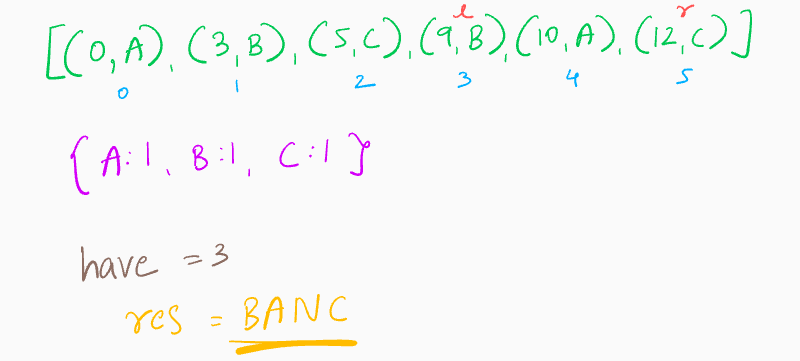 l r
[(0,A), (3,B), (5,C), (9,B), (10,A), (12,C)]
0 1 2 3 4 5
{A:1, B:1, C:1}
have = 3
res = BANC